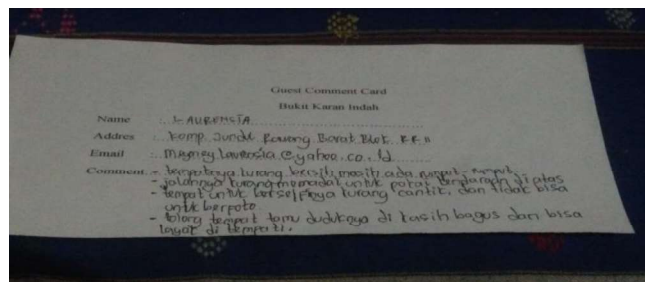 Guest Comment Card
Bukit Karan Indah
Name : LAURENSIA
Addres : Komp. Jundul Rawang Barat Blok KK 11
Email :
Comment : - tempatnya kurang bersih, masih ada rumput-rumput.
- jalannya kurang memadai untuk pakai kendaraan di atas
- tempat untuk berselfinya kurang cantik, dan tidak bisa
untuk berpoto.
- tolong tempat tamu duduknya di kasih bagus dan bisa
layak di tempati.